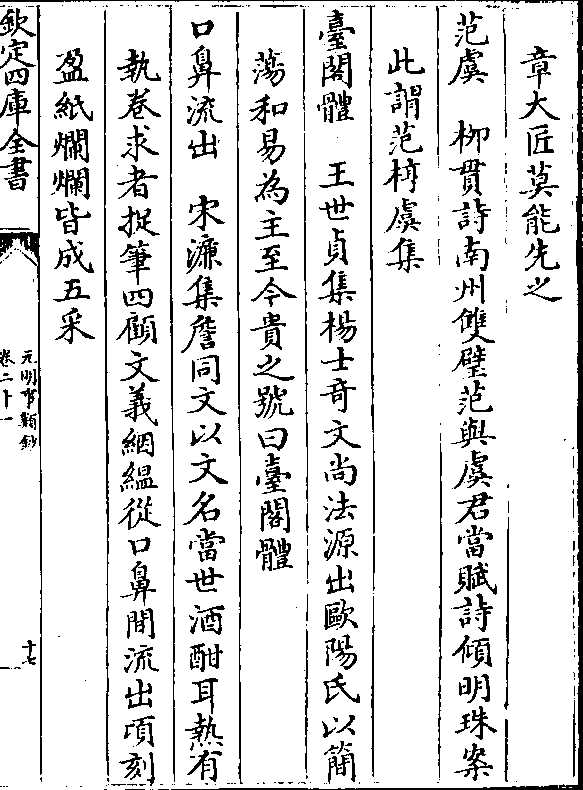 章大匠莫能先之
范虞　柳貫詩南州雙璧范與虞君當賦詩傾明珠案
此謂范梈虞集
臺閣體　王世貞集楊士奇文尚法源出歐陽氏以簡
蕩和易為主至今貴之號曰臺閣體
口鼻流出　宋濂集詹同文以文名當世酒酣耳熱有
執卷求者捉筆四顧文義絪緼從口鼻間流出頃刻
盈紙爛爛皆成五采
欽定四庫全書
元明事類鈔
卷二十一
十七